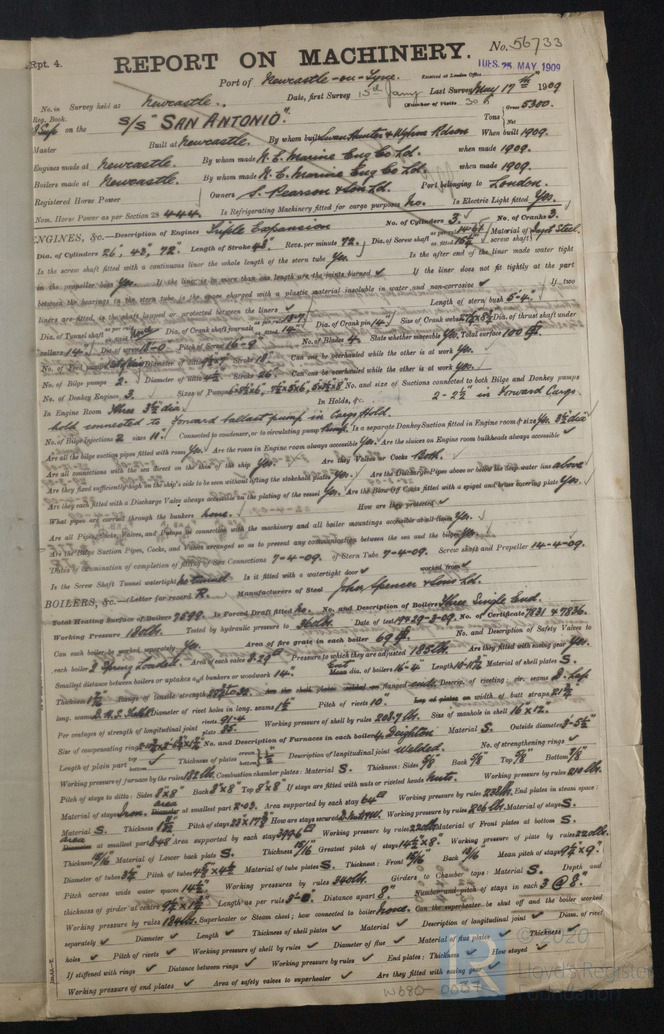 Rpt. 4.
REPORT ON MACHINERY. No. 56733
TUES. 25 MAY 1909
Port of Newcastle-on-Tyne. Received at London Office
No. in Survey held at Newcastle. Date, first Survey Last Survey May 17th 1909
Reg. Book. (Number of Visits
on the S/S "SAN ANTONIO". Tons Gross 5300. Net
Master Built at Newcastle. By whom built When built 1909.
Engines made at Newcastle. By whom made N. E. Marine Eng Co Ld. when made 1909.
Boilers made at Newcastle. By whom made N. E. Marine Eng Co Ld. when made 1909.
Registered Horse Power Owners S. Pearson & Son Ld. Port belonging to London.
Nom. Horse Power as per Section 28 444. Is Refrigerating Machinery fitted for cargo purposes No. Is Electric Light fitted Yes.
ENGINES, &c.—Description of Engines Triple Expansion No. of Cylinders 3. No. of Cranks 3.
Dia. of Cylinders 26", 43", 72" Length of Stroke 48" Revs. per minute 72. Dia. of Screw shaft Material of screw shaft
Is the screw shaft fitted with a continuous liner the whole length of the stern tube Yes. Is the after end of the liner made water tight
in the propeller boss Yes. If the liner is in more than one length are the joints burned If the liner does not fit tightly at the part
between the bearings in the stern tube, is the space charged with a plastic material insoluble in water and non-corrosive If two
liners are fitted, is the shaft lapped or protected between the liners Length of stern bush 5-4.
Dia. of Tunnel shaft Dia. of Crank shaft journals Dia. of Crank pin 14" Size of Crank webs Dia. of thrust shaft under
collars 14" Dia. of screw 18-0 Pitch of Screw 16-9 No. of Blades 4. State whether moveable Yes. Total surface 100
No. of Feed pumps Diameter of ditto Stroke Can one be overhauled while the other is at work Yes.
No. of Bilge pumps 2. Diameter of ditto Stroke 26" Can one be overhauled while the other is at work Yes.
No. of Donkey Engines 3. Sizes of Pumps No. and size of Suctions connected to both Bilge and Donkey pumps
In Engine Room Three 3½ dia. In Holds, &c. 2 - 2½" in Forward Cargo
hold connected to forward ballast pump in Cargo Hold.
No. of Bilge Injections 2 sizes 11" Connected to condenser, or to circulating pump Is a separate Donkey Suction fitted in Engine room & size Yes. 3½ dia
Are all the bilge suction pipes fitted with roses Yes. Are the roses in Engine room always accessible Yes. Are the sluices on Engine room bulkheads always accessible
Are all connections with the sea direct on the skin of the ship Yes. Are they Valves or Cocks both.
Are they fixed sufficiently high on the ship's side to be seen without lifting the stokehold plates Yes. Are the Discharge Pipes above or below the deep water line above
Are they each fitted with a Discharge Valve always accessible on the plating of the vessel Yes. Are the Blow Off Cocks fitted with a spigot and brass covering plate Yes.
What pipes are carried through the bunkers none. How are they protected
Are all Pipes, Cocks, Valves, and Pumps in connection with the machinery and all boiler mountings accessible at all times Yes.
Are the Bilge Suction Pipes, Cocks, and Valves arranged so as to prevent any communication between the sea and the bilges Yes.
Dates of examination of completion of fitting of Sea Connections 7-4-09. of Stern Tube 7-4-09. Screw shaft and Propeller 14-4-09.
Is the Screw Shaft Tunnel watertight no tunnel Is it fitted with a watertight door worked from
BOILERS, &c.—(Letter for record R.) Manufacturers of Steel John Spencer & Sons Ld.
Total Heating Surface of Boilers 7899. Is Forced Draft fitted No. No. and Description of Boilers Three Single End.
Working Pressure 180 lbs. Tested by hydraulic pressure to 360 lbs. Date of test No. of Certificate 7831 & 7836.
Can each boiler be worked separately Yes. Area of fire grate in each boiler 69 No. and Description of Safety Valves to
each boiler 2 Spring Loaded. Area of each valve 8.29 Pressure to which they are adjusted 185 lbs. Are they fitted with easing gear Yes.
Smallest distance between boilers or uptakes and bunkers or woodwork 14" dia. of boilers 16-4" Length Material of shell plates S.
Thickness Range of tensile strength Are the shell plates welded or flanged Descrip. of riveting: cir. seams
long. seams Diameter of rivet holes in long. seams Pitch of rivets 10. Lap of plates or width of butt straps 21½
Per centages of strength of longitudinal joint rivets 91.4 plate 85. Working pressure of shell by rules 208.7 lbs. Size of manhole in shell 16 x 12"
Size of compensating ring No. and Description of Furnaces in each boiler 4 Deighton Material S. Outside diameter 3-5½"
Length of plain part top bottom Thickness of plates crown bottom Description of longitudinal joint welded. No. of strengthening rings
Working pressure of furnace by the rules 182 lbs. Combustion chamber plates: Material S. Thickness: Sides 5/8" Back 5/8" Top 5/8" Bottom
Pitch of stays to ditto: Sides 8"x8" Back 8"x8" Top 8"x8" If stays are fitted with nuts or riveted heads nuts. Working pressure by rules 210 lbs.
Material of stays Iron. area at smallest part 2.03. Area supported by each stay 64 Working pressure by rules End plates in steam space:
Material S. Thickness Pitch of stays How are stays secured Working pressure by rules Material of stays S.
area at smallest part Area supported by each stay Working pressure by rules Material of Front plates at bottom S.
Thickness 15/16 Material of Lower back plate S. Thickness 15/16 Greatest pitch of stays 14½ x 8" Working pressure of plate by rules 220 lbs.
Diameter of tubes 3½ Pitch of tubes Material of tube plates S. Thickness: Front 15/16 Back Mean pitch of stays
Pitch across wide water spaces 14½" Working pressures by rules 340 lbs. Girders to Chamber tops: Material S. Depth and
thickness of girder at centre Length as per rule Distance apart 8" Number and pitch of stays in each 3 @ 8"
Working pressure by rules 184 lbs. Superheater or Steam chest; how connected to boiler none. Can the superheater be shut off and the boiler worked
separately Diameter Length Thickness of shell plates Material Description of longitudinal joint Diam. of rivet
holes Pitch of rivets Working pressure of shell by rules Diameter of flue Material of flue plates Thickness
If stiffened with rings Distance between rings Working pressure by rules End plates: Thickness How stayed
Working pressure of end plates Area of safety valves to superheater Are they fitted with easing gear
W680-0037
© 2020
Lloyd's Register
Foundation